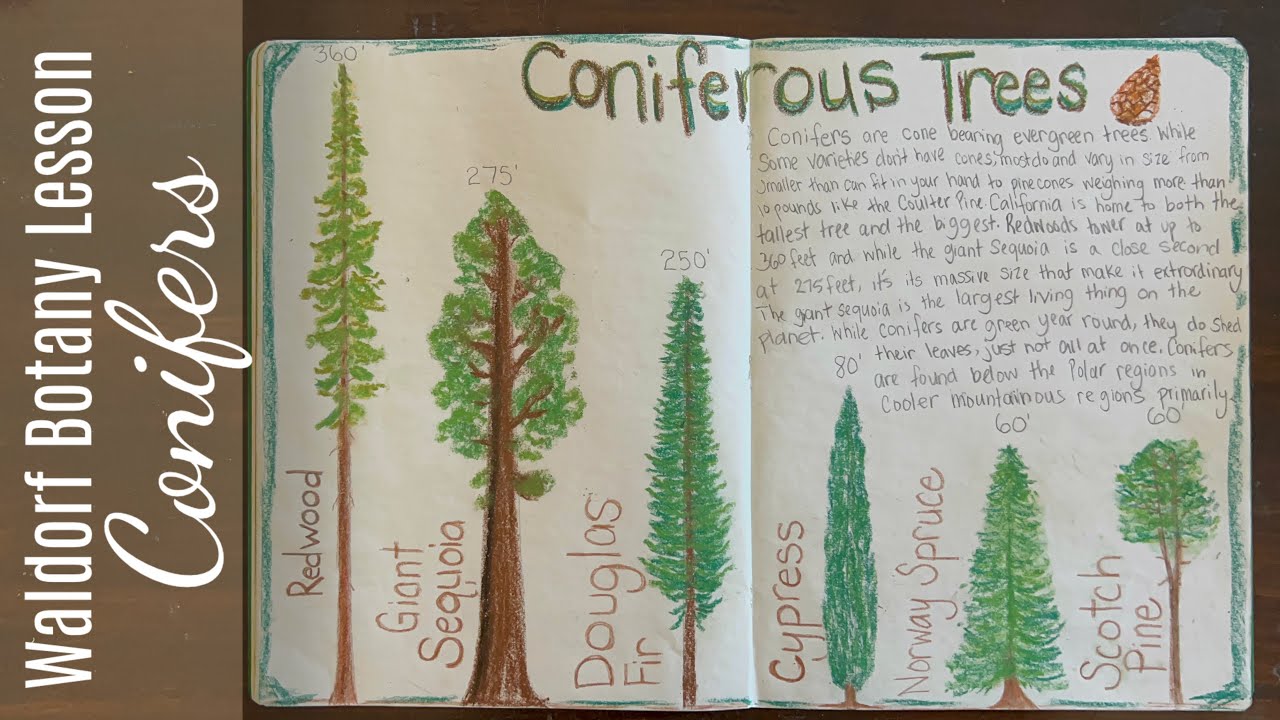 Waldorf Botany Lesson
Conifers
Coniferous Trees
Conifers are cone bearing evergreen trees. While
Some varieties don't have cones, most do and vary in size from
smaller than can fit in your hand to pinecones weighing more than
10 pounds like the Coulter Pine. California is home to both the
tallest tree and the biggest. Redwoods tower at up to
360 feet and while the giant Sequoia is a close second
at 275 feet, it's its massive size that make it extrordinary
The giant sequoia is the largest living thing on the
Planet. While conifers are green year round, they do shed
their leaves, just not all at once. Conifers
are found below the Polar regions in
Cooler mountainous regions primarily.
360'
Redwood
275'
Giant
Sequoia
250'
Douglas
Fir
80'
Cypress
60'
Norway Spruce
60'
Scotch
Pine